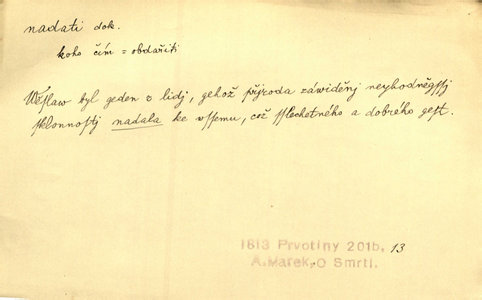 nadati dok.
koho čím = obdařiti
Wěslaw byl geden z lidj, gehož přjroda záwiděnj neyhodněgssj
sklonnostj nadala ke wssemu, což sslechetného a dobrého gest.
1813 Prvotiny 201b, 13
A.Marek, O Smrti.